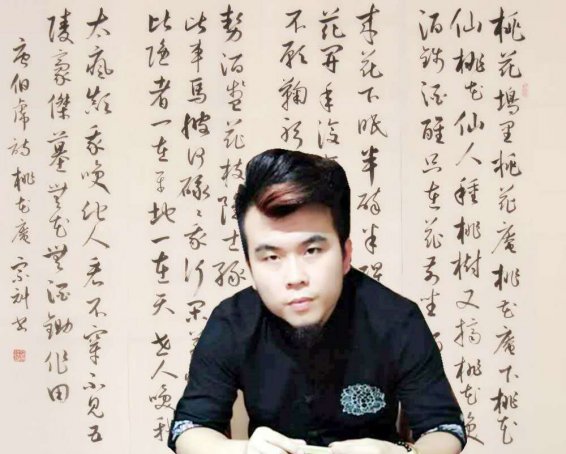 桃花塢里桃花庵桃花庵下桃花
仙桃花仙人種桃樹又摘桃花換
酒錢酒醒只在花前坐
來花下眠半醉半醒
花開年復
不願鞠躬
勢酒盞花枝隱士緣
此車馬彼何碌碌我何閑
比隱者一在平地一在天世人笑我
太瘋癲我笑他人看不穿不見五
陵豪傑墓無花無酒鋤作田
唐伯虎詩桃花庵